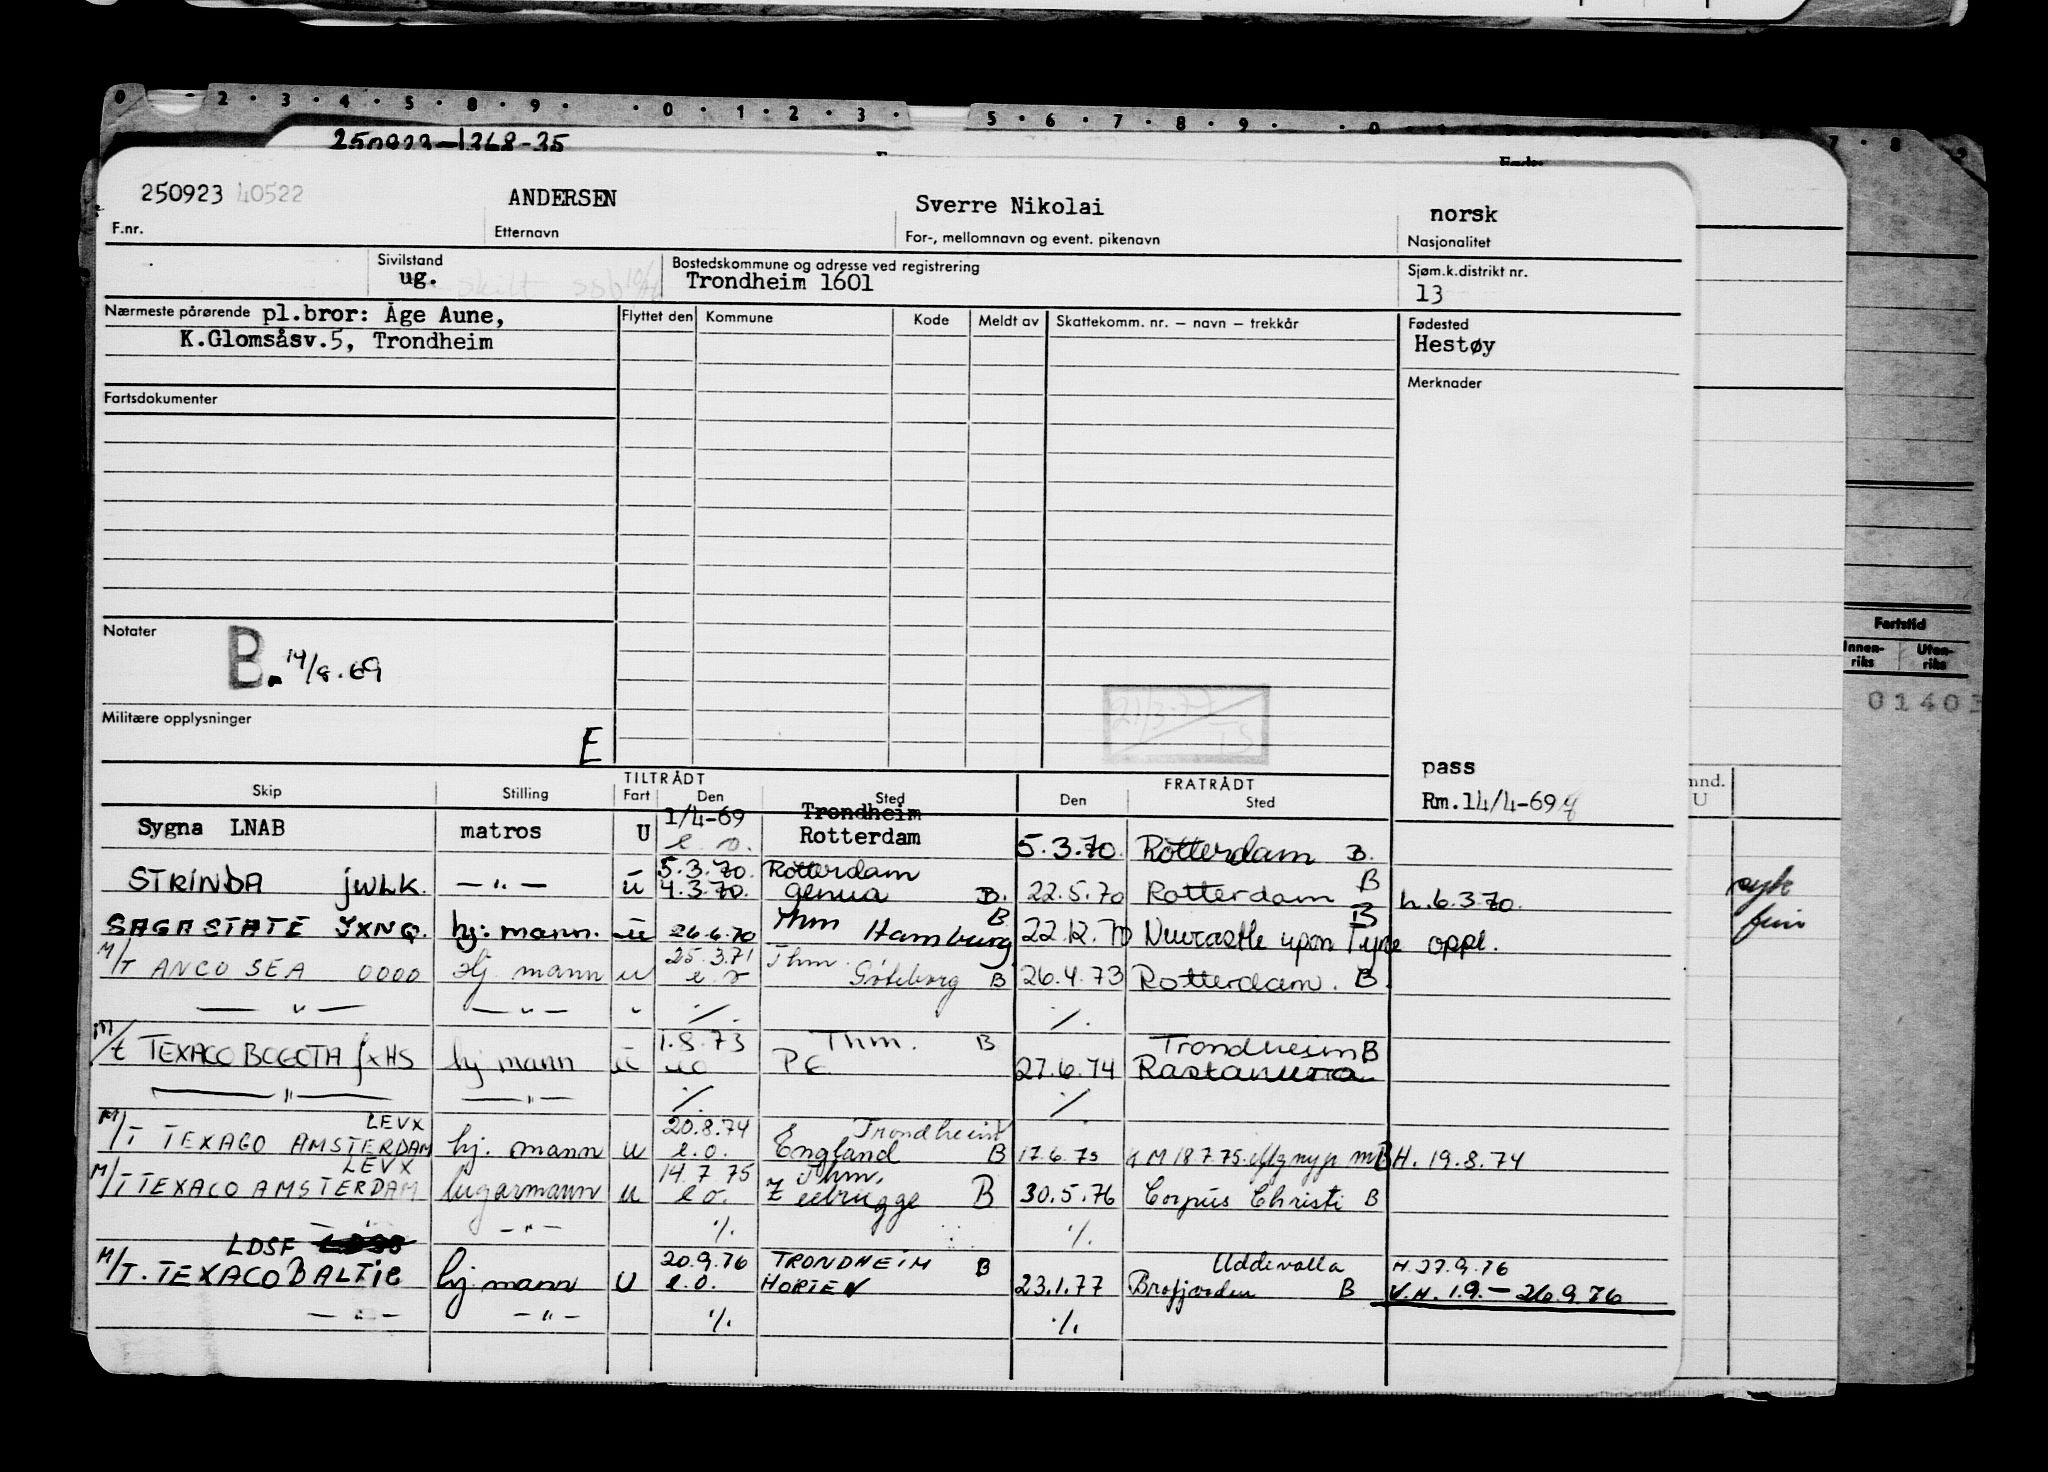 250923-1368-35
250923 40522 ANDERSEN Sverre Nikolai norsk
F.nr. Etternavn For-, mellomnavn og event. pikenavn Nasjonalitet
Sivilstand Bostedskommune og adresse ved registrering Sjøm.k.distrikt nr.
ug. skilt Trondheim 1601 13
Nærmeste pårørende pl.bror: Åge Aune, Flyttet den Kommune Kode Meldt av Skattekomm. nr. – navn – trekkår Fødested
K.Glomsåsv.5, Trondheim Hestøy
Merknader
Fartsdokumenter
Fartstid
Innen-riks Uten-riks
Notater
B. 14/8.69
01403
Militære opplysninger
E
21/3.77
pass
Rm.14/4-69
Skip Stilling TILTRÅDT Fart Den Sted FRATRÅDT Den Sted
mnd.
U
Sygna LNAB matros U 1/4-69 e.o. Trondheim Rotterdam 5.3.70. Rotterdam B.
STRINDA JWLK. –"– u 5.3.70. 4.3.70. Rotterdam Genua B. 22.5.70 Rotterdam B h.6.3.70.
SAGA STATE JXNQ. hj: mann. u 26.6.70 Thm Hamburg B 22.12.70 Newcastle upon Tyne B oppl.
M/T ANCO SEA 0000 Hj. mann u 25.3.71 e.o Thm. Göteborg B 26.4.73 Rotterdam. B.
–"– –"– " ./. ./.
M/t TEXACO BOGOTA JXHS hj mann u 1.8.73 uo Thm. PG B 27.6.74 Trondheim B Rastanura
–"– –"– ./. ./.
M/T TEXACO AMSTERDAM LEVX hj. mann u 20.8.74 e.o. Trondheim England B 17.6.75 M 18.7.75. B H. 19.8.74
M/T TEXACO AMSTERDAM LEVX lugarmann u 14.7.75 e.o. Thm. Zeebrügge B 30.5.76 Corpus Christi B
–"– –"– ./. ./.
M/T. TEXACO BALTIC LDSF hj mann U 20.9.76 e.o. TRONDHEIM HORTEN B 23.1.77 Uddevalla Brofjorden B H.27.9.76
V.H. 1.9.– 26.9.76
–"– –"– ./. ./.